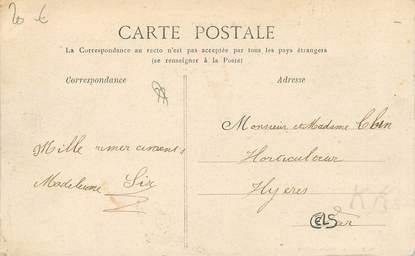 20 €
CARTE POSTALE
La Correspondance au recto n'est pas acceptée par tous les pays étrangers
(se renseigner à la Poste)
Correspondance
Adresse
Monsieur et Madame
Mille
Madeleine Six
Horticulteur
Hyères
Var